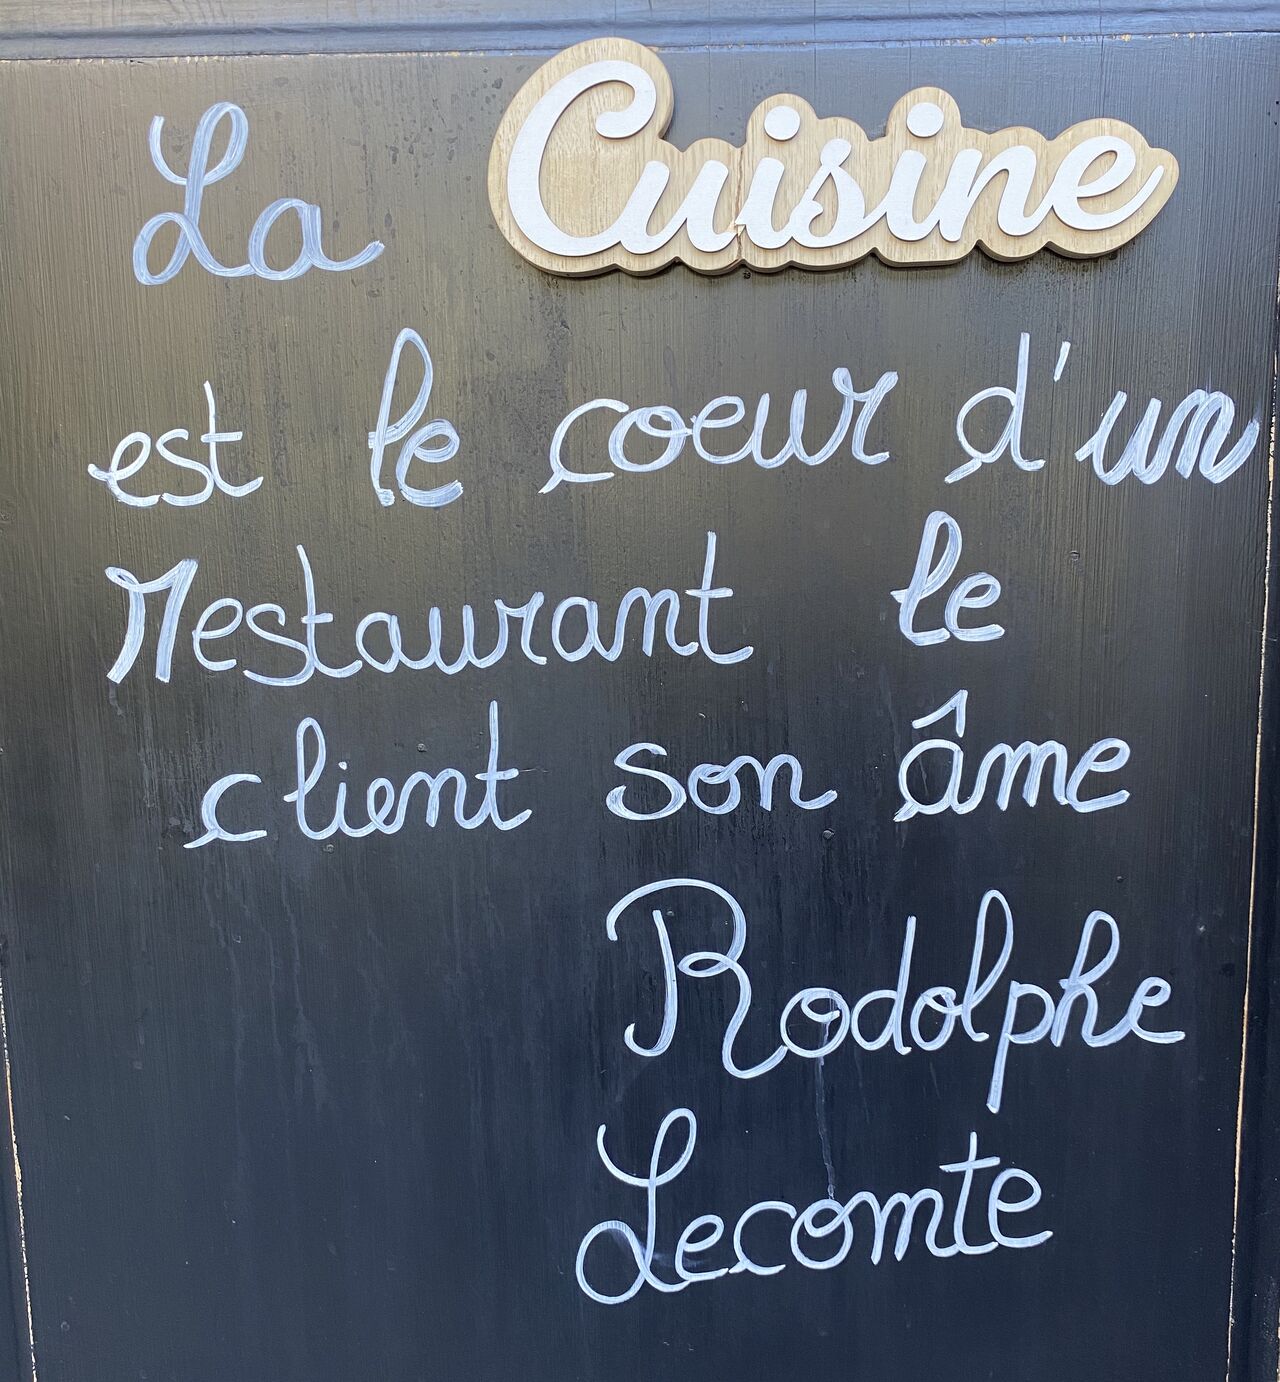 La Cuisine
est le coeur d'un
restaurant le
client son âme
Rodolphe
Lecomte